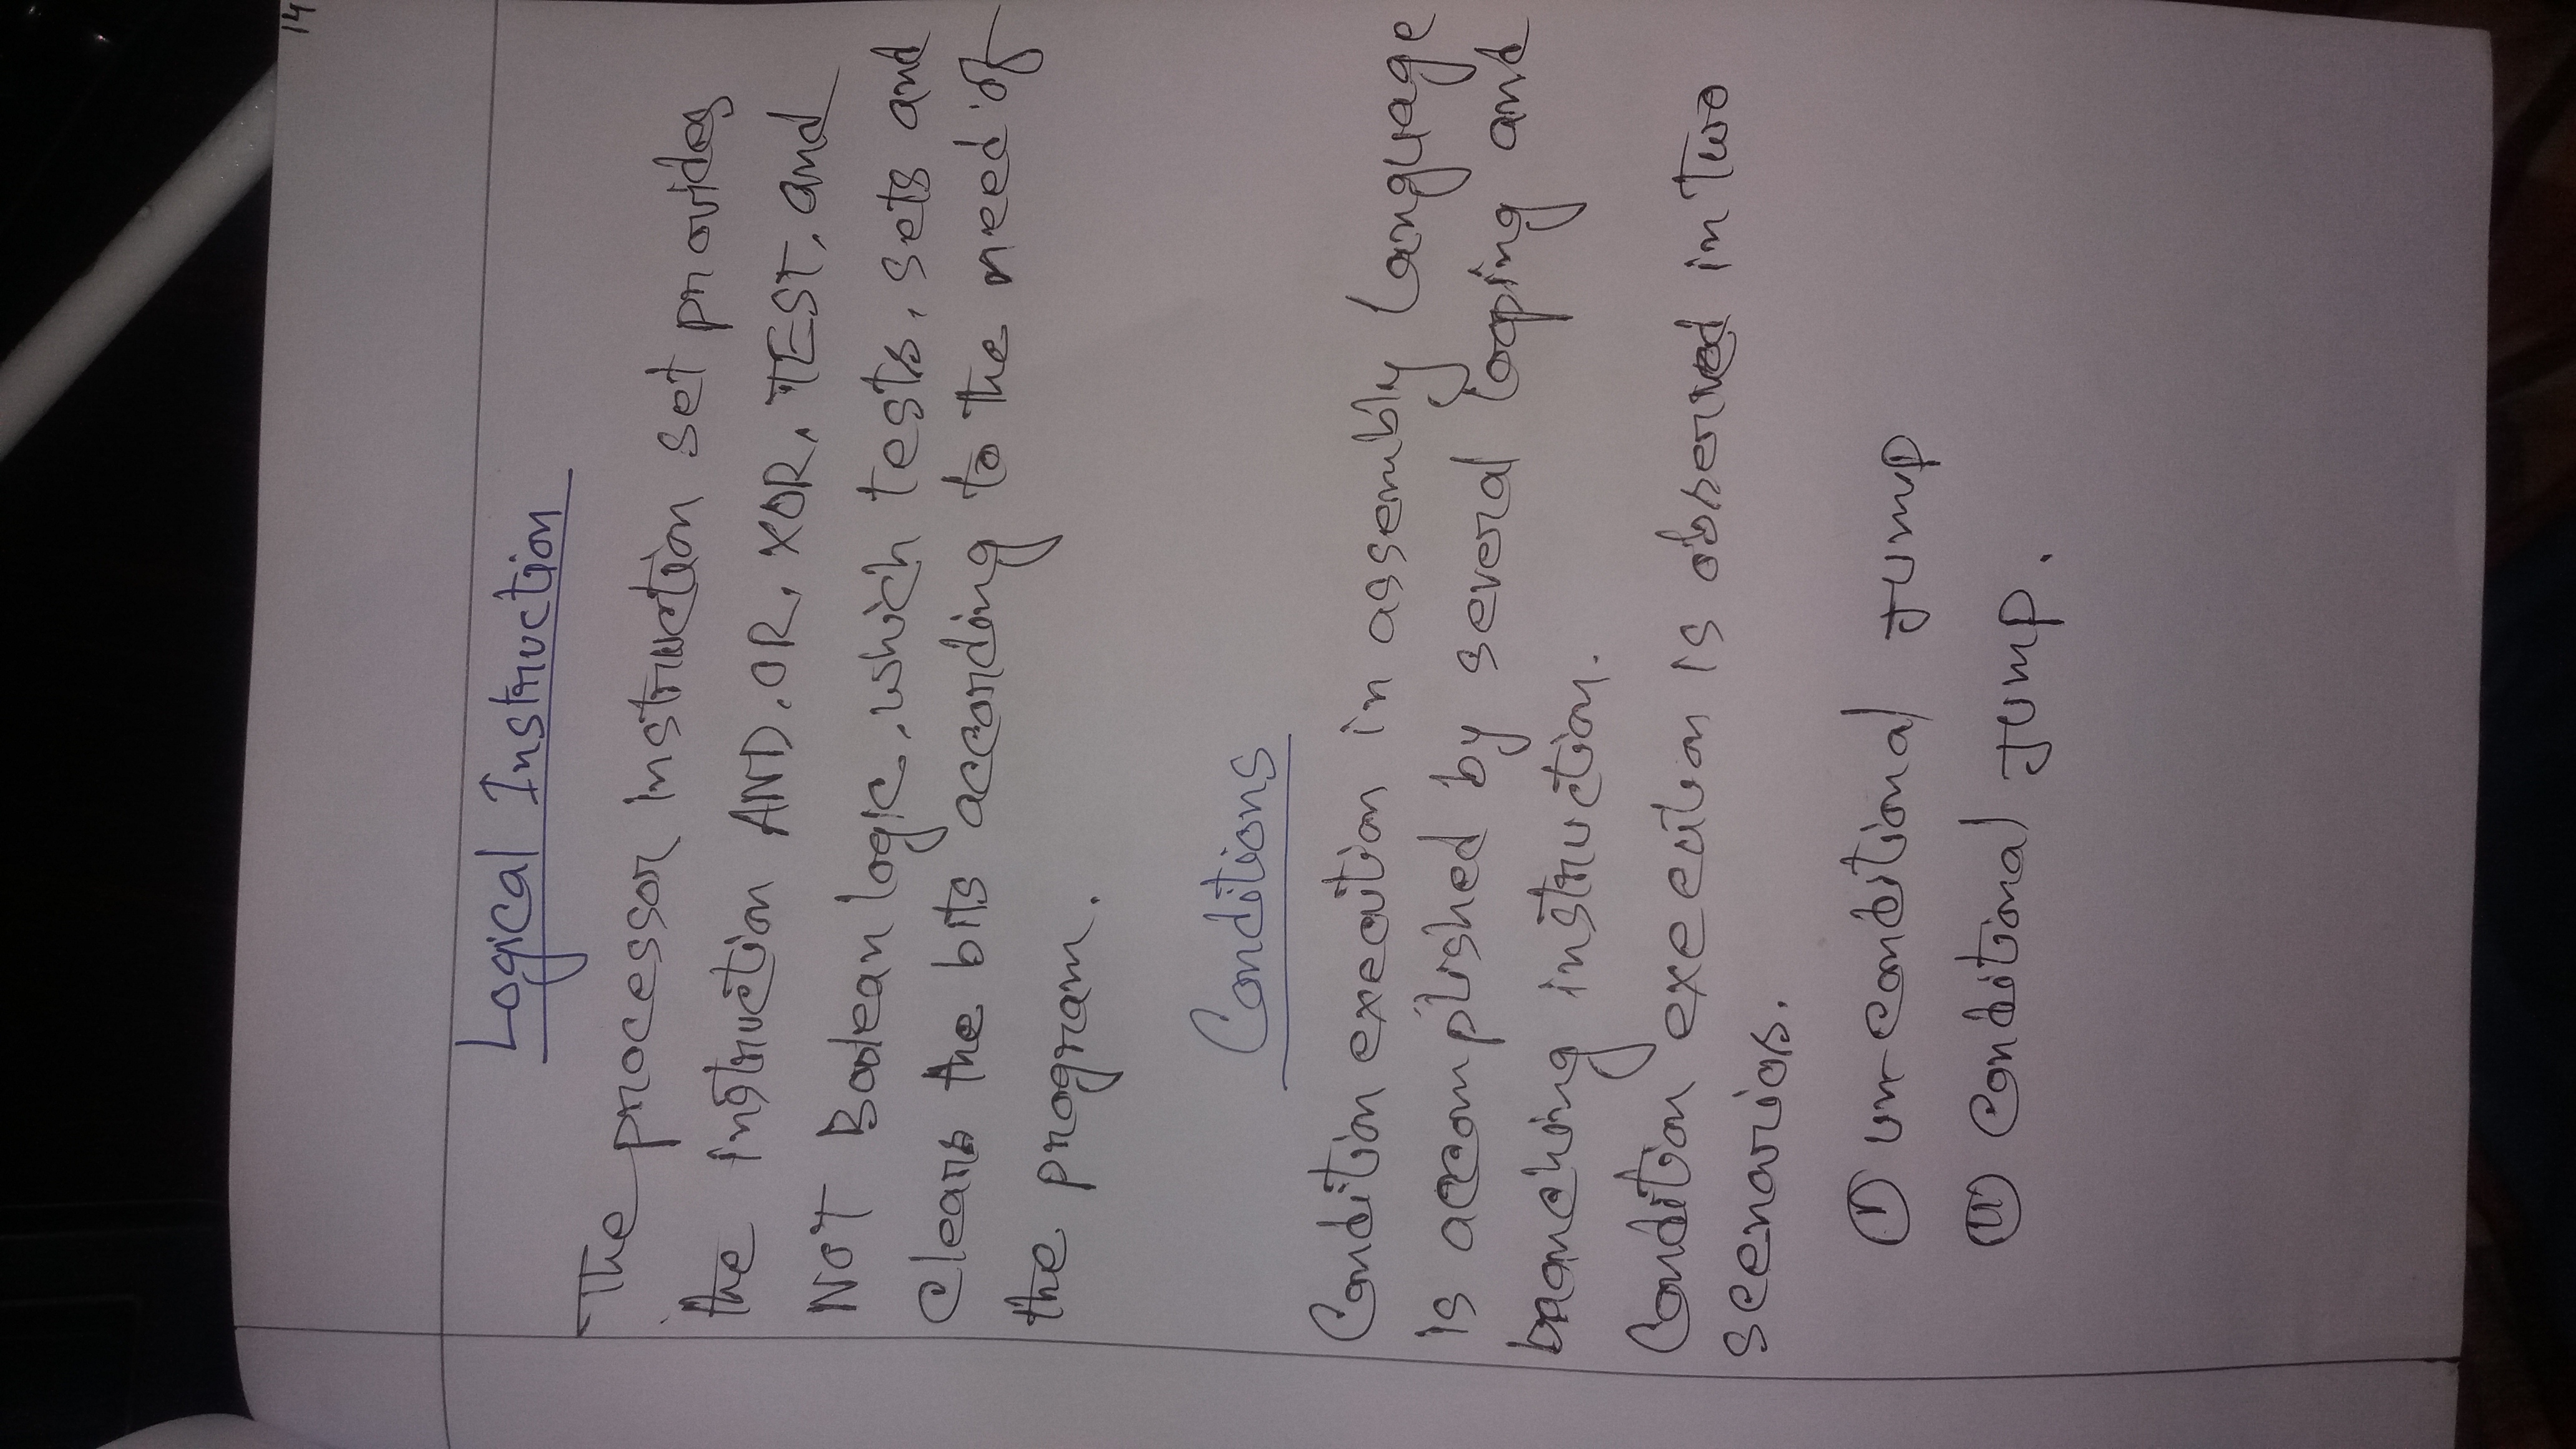 14
Logical Instruction
The processor instruction set provides
the instruction AND, OR, XOR, TEST, and
NOT Boolean logic, which tests, sets and
Clears the bits according to the need of
the program.
Conditions
Condition execution in assembly language
is accomplished by several looping and
branching instruction.
Condition execution is observed in two
scenarios.
(i) un-conditional JUMP
(ii) Conditional JUMP.